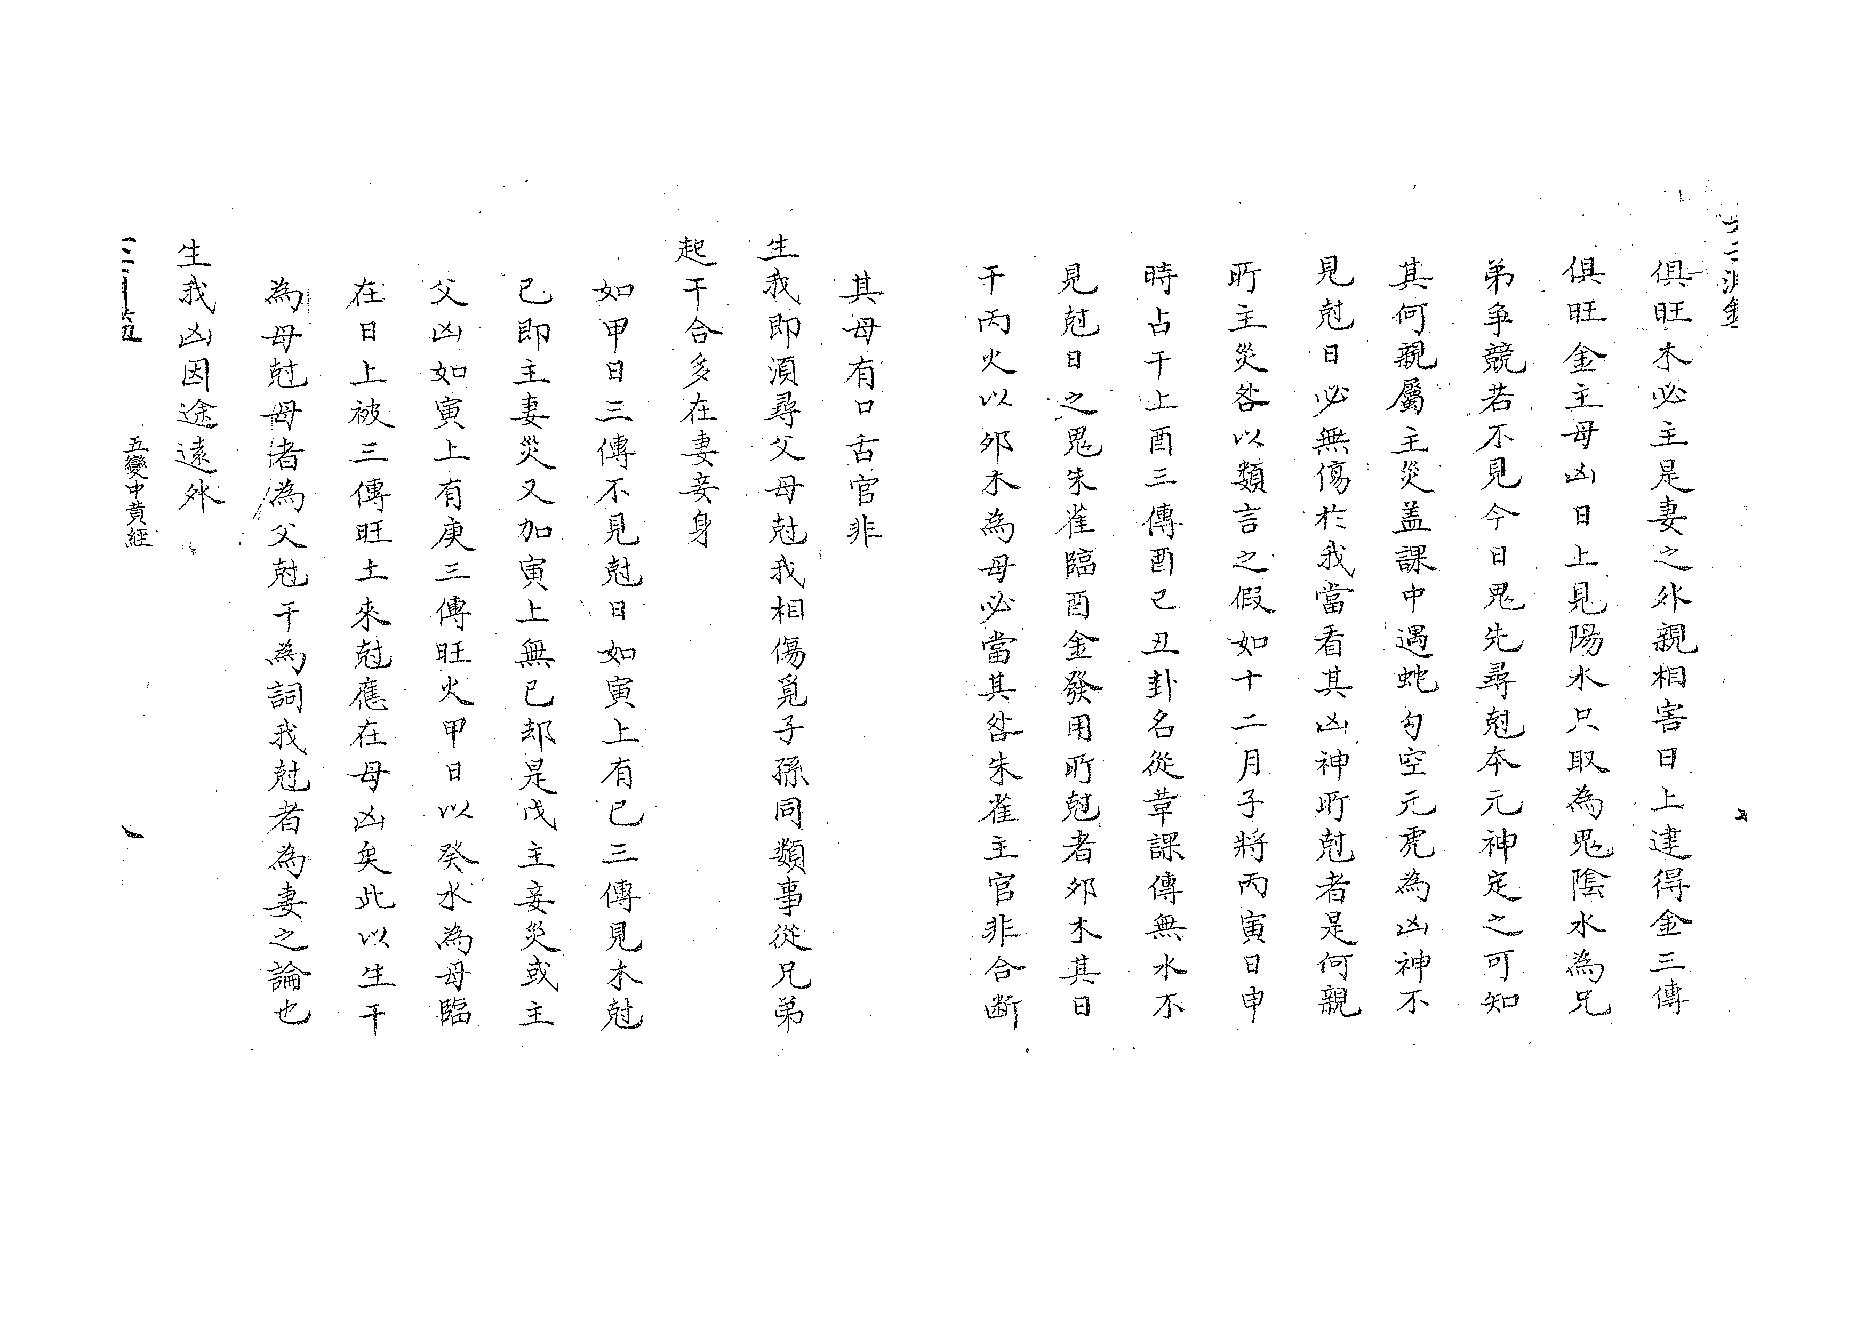 俱旺木必主是妻之外親相害日上逮得金三傳
俱旺金主母凶日上見陽水只取為鬼陰水為兄
弟爭競若不見今日鬼先尋尅本元神定之可知
其何親屬主災盖課中遇蛇勾空元虎為凶神不
見尅日必無傷於我當看其凶神所尅者是何親
所主災咎以類言之假如十二月子將丙寅日申
時占干上酉三傳酉己丑卦名從革課傳無水不
見尅日之鬼朱雀臨酉金發用所尅者夘木其日
干丙火以夘木為母必當其咎朱雀主官非合断
其母有口舌官非
生我即須尋父母尅我相傷覓子孫同類事從兄弟
起干合多在妻妾身
如甲日三傳不見尅日如寅上有已三傳見木尅
已即主妻災又加寅上無已却是戊主妾災或主
父凶如寅上有庚三傳旺火甲日以癸水為母臨
在日上被三傳旺土來尅應在母凶矣此以生干
為母尅母渚為父尅干為詞我尅者為妻之論也
生我凶因途遠外
五變中黄經